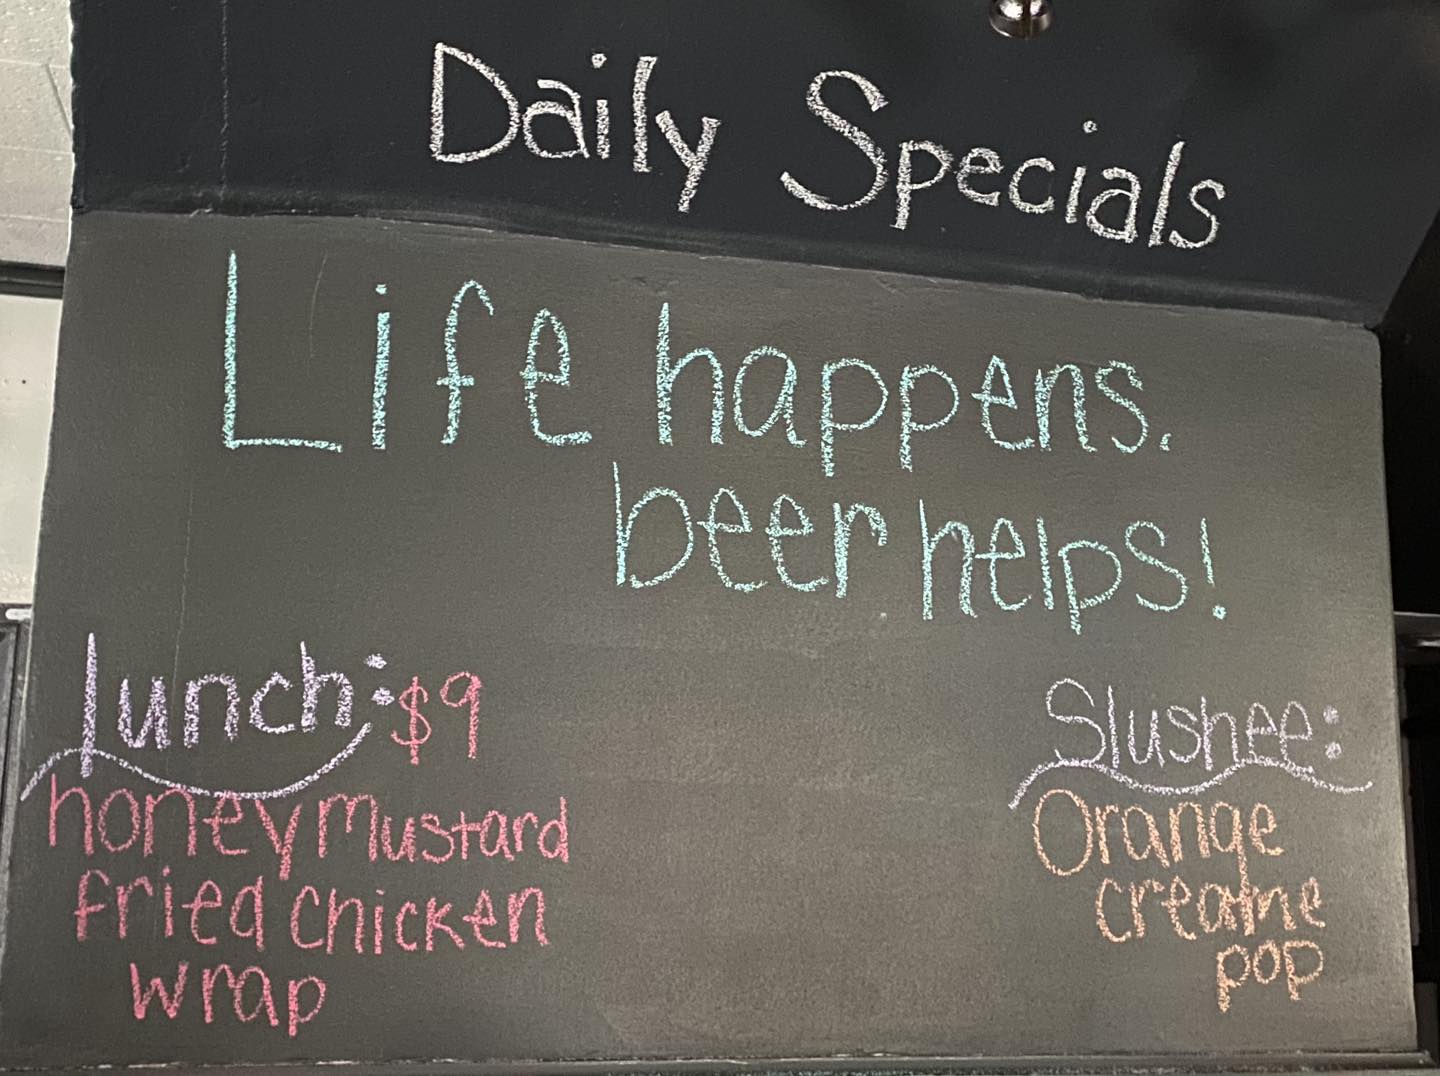 Daily Specials
Life happens.
beer helps!
lunch: $9
honey mustard
fried chicken
wrap
Slushee:
Orange
creame
pop